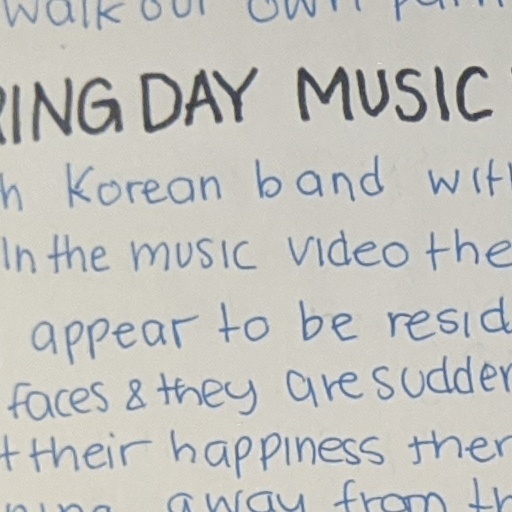 walk our own
ING DAY MUSIC
h Korean band with
In the music video the
appear to be resid
faces & they are sudden
t their happiness ther
away from th